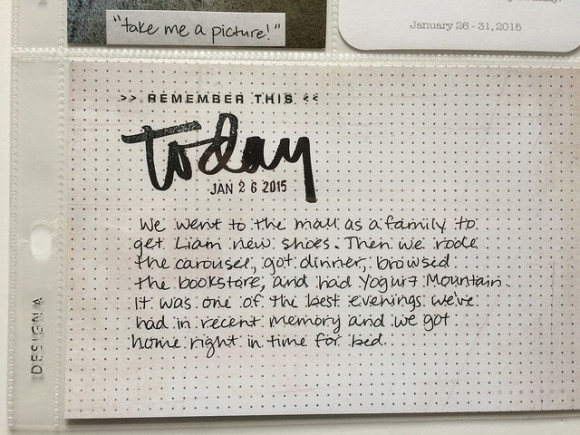 "take me a picture!"
January 26-31, 2015
>> REMEMBER THIS <<
today
JAN 26 2015
We went to the mall as a family to
get Liam new shoes. Then we rode
the carousel, got dinner, browsed
the bookstore, and had Yogurt Mountain.
It was one of the best evenings we've
had in recent memory and we got
home right in time for bed.
DESIGN A